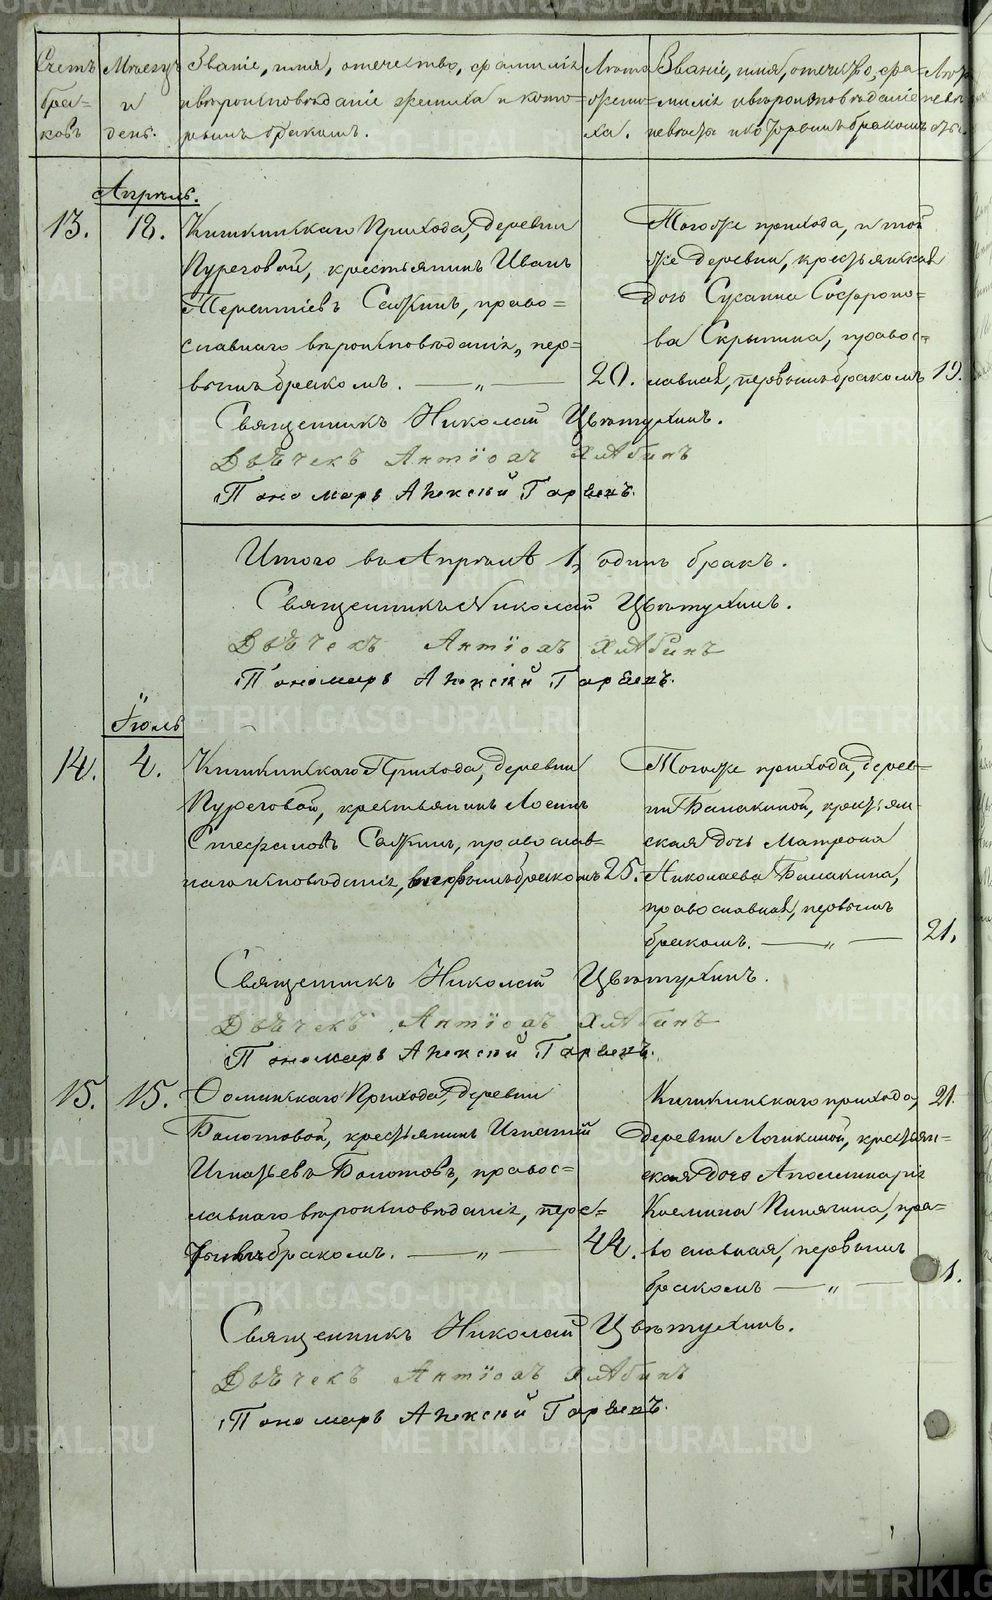 Счетъ бра-ковъ
Месяцъ и день.
Званіе, имя, отечество, фамилія
и вѣроисповѣданіе жениха и кото-
рымъ бракомъ.
Лѣта жени-ха.
Званіе, имя, отечество, фа-
милія и вѣроисповѣданіе
невѣсты и которымъ бракомъ
Лѣта невѣсты.
Апрѣль.
13.
18.
Кишкинскаго Прихода, деревни
Пуреговой, крестьянинъ Иванъ
Терентіевъ Сажинъ, право=
славнаго вѣроисповѣданія, пер=
вымъ бракомъ. — „ —
20.
Тогоже прихода, и той
же деревни, крестьянская
дочь Сусанна Софроно=
ва Скрыпина, правос=
лавная, первымъ бракомъ
19.
Священникъ Николай Цвѣтухинъ.
Дьячекъ Антіохъ Хлѣбинъ
Пономарь Алексій
Итого въ Апрѣлѣ 1, одинъ бракъ.
Священникъ Николай Цвѣтухинъ.
Дьячекъ Антіохъ Хлѣбинъ
Пономарь Алексій
Іюль
14.
4.
Кишкинскаго Прихода, деревни
Пуреговой, крестьянинъ Логинъ
Стефановъ Сажинъ, православ=
наго исповѣданія, первымъ бракомъ
25.
Тогоже прихода, дерев=
ни Балакиной, крестьян-
ская дочь Матрона
Николаева Балакина,
православная, первымъ
бракомъ. — „ —
21.
Священникъ Николай Цвѣтухинъ.
Дьячекъ Антіохъ Хлѣбинъ
Пономарь Алексій
15.
15.
Фоминскаго Прихода, деревни
Болотовой, крестьянинъ Игнатій
Игнатьевъ Болотовъ, правос=
лавнаго вѣроисповѣданія,
бракомъ. — „ —
44.
Кишкинскаго прихода,
деревни Логикиной, крестьян=
ская дочь Аполлинарія
Козмина Пинягина, пра=
вославная, первымъ
бракомъ — „ —
21.
Священникъ Николай Цвѣтухинъ.
Дьячекъ Антіохъ Хлѣбинъ
Пономарь Алексій
METRIKI.GASO-URAL.RU